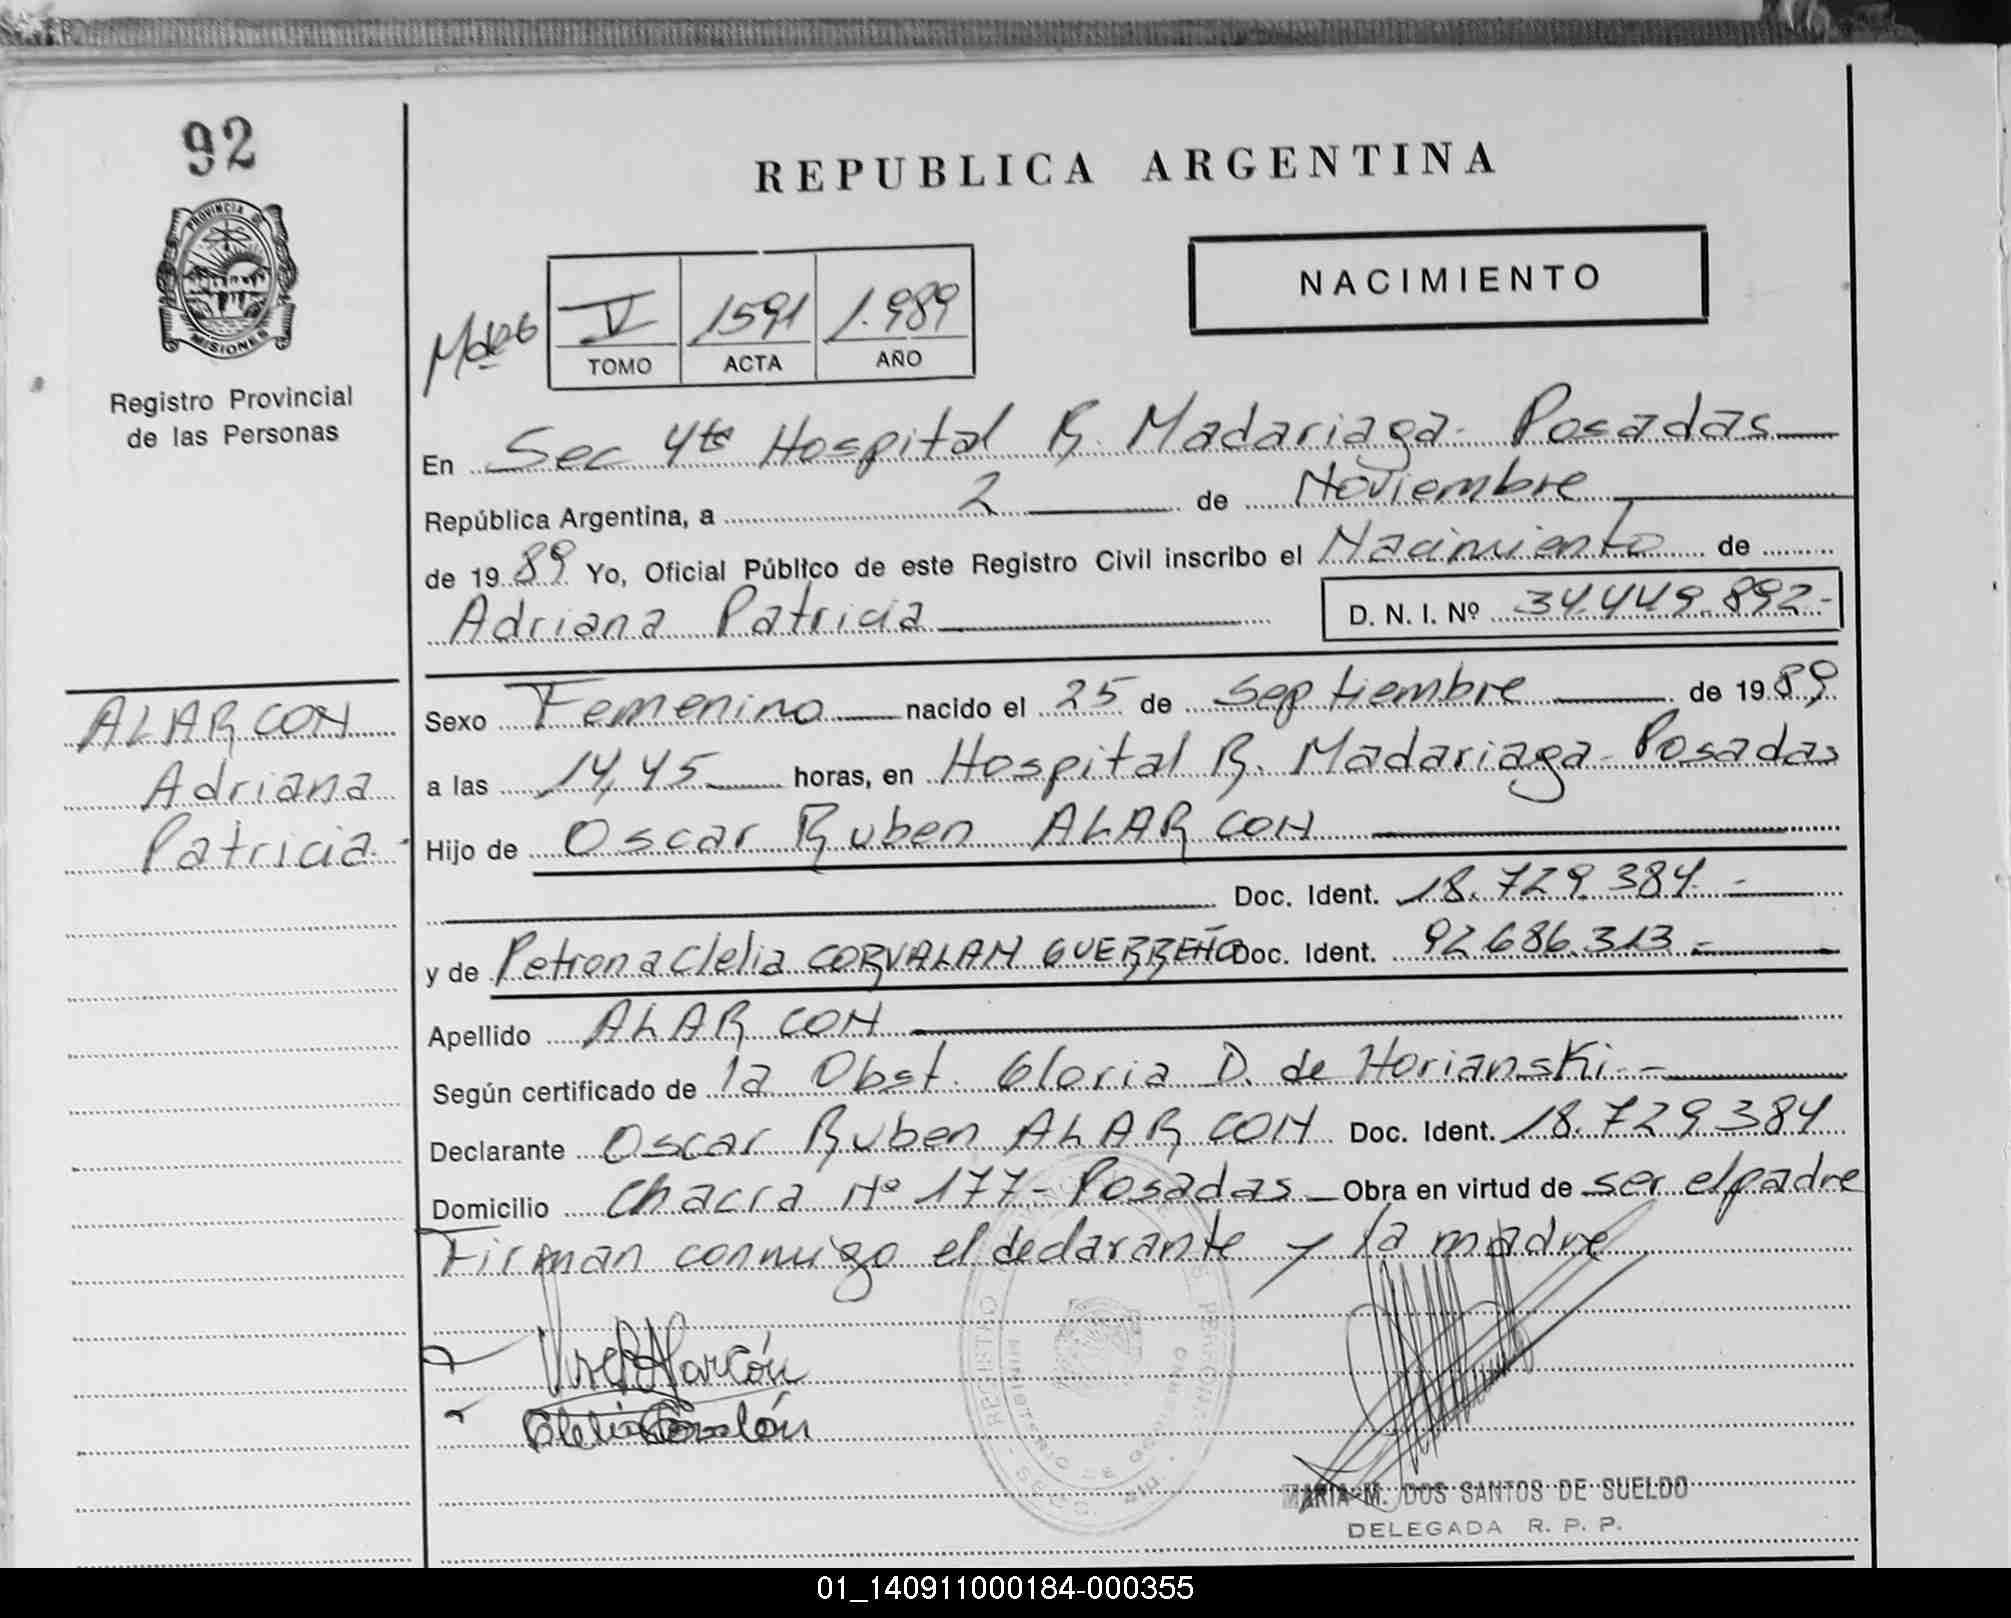 92
REPUBLICA ARGENTINA
PROVINCIA DE
MISIONES
Registro Provincial
de las Personas
NACIMIENTO
V 1591 1.989
TOMO ACTA AÑO
En Sec 4ta Hospital R. Madariaga - Posadas
República Argentina, a 2 de Noviembre
de 1989 Yo, Oficial Público de este Registro Civil inscribo el Nacimiento de
Adriana Patricia D. N. I. Nº 34.449.892-
ALARCON
Adriana
Patricia.-
Sexo Femenino nacido el 25 de Septiembre de 1989
a las 14,45 horas, en Hospital R. Madariaga - Posadas
Hijo de Oscar Ruben ALARCON
Doc. Ident. 18.729.384.-
y de Petrona Clelia CORVALAN GUERREÑO Doc. Ident. 92.686.313.-
Apellido ALARCON
Según certificado de la Obst. Gloria D. de Horianski.-
Declarante Oscar Ruben ALARCON Doc. Ident. 18.729.384
Domicilio Chacra Nº 177- Posadas Obra en virtud de ser el padre
Firman conmigo el declarante y la madre
Alarcón
Clelia Corvalón
REGISTRO
MINISTERIO DE GOBIERNO
MARIA M. DOS SANTOS DE SUELDO
DELEGADA R. P. P.
01_140911000184-000355